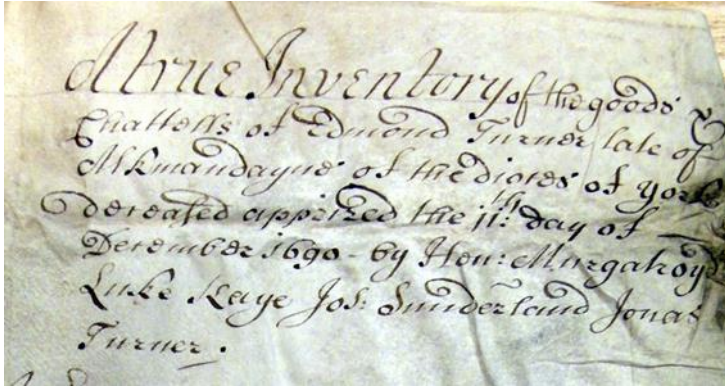 A true Inventory of the goods &
Chattells of Edmond Turner late of
Alkmandayne of the dioces of York
deceased apprized the 11th day of
December 1690 - by Hen: Murgatroyd
Luke Kaye Jos: Sunderland Jonas
Turner.